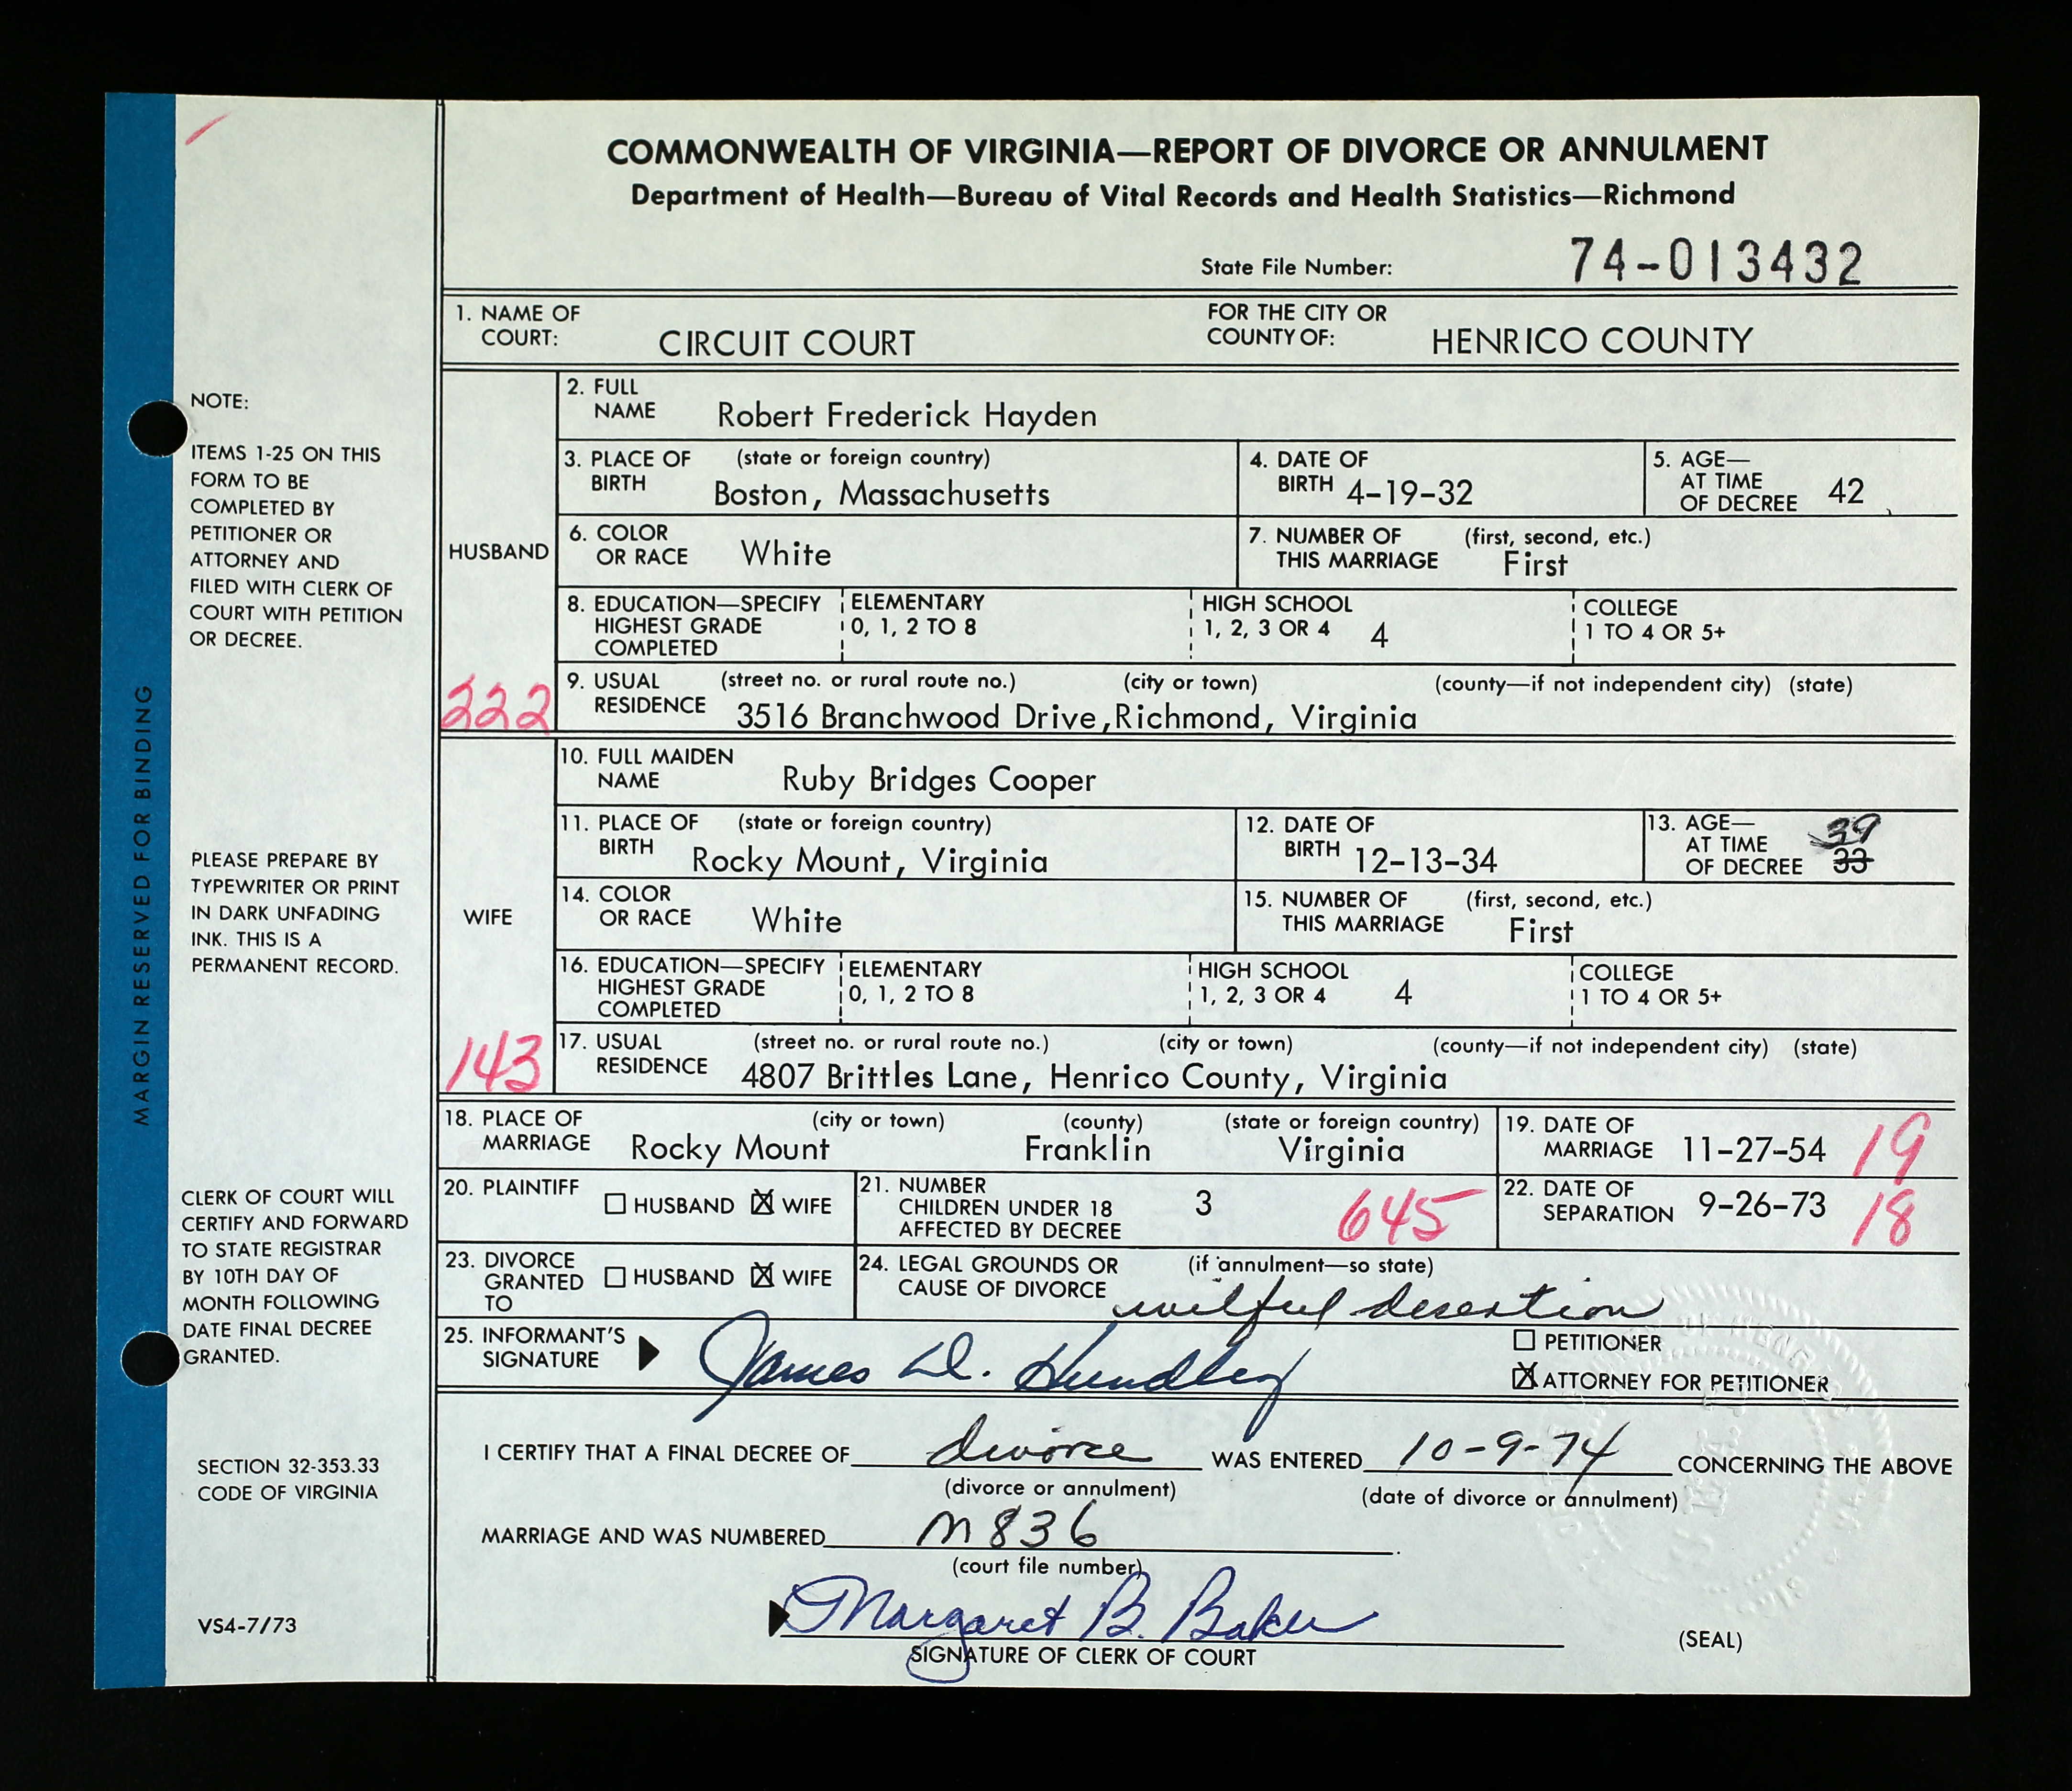 COMMONWEALTH OF VIRGINIA—REPORT OF DIVORCE OR ANNULMENT
Department of Health—Bureau of Vital Records and Health Statistics—Richmond
State File Number: 74-013432
1. NAME OF COURT: CIRCUIT COURT FOR THE CITY OR COUNTY OF: HENRICO COUNTY
HUSBAND
2. FULL NAME Robert Frederick Hayden
3. PLACE OF BIRTH (state or foreign country) Boston, Massachusetts
4. DATE OF BIRTH 4-19-32
5. AGE—AT TIME OF DECREE 42
6. COLOR OR RACE White
7. NUMBER OF THIS MARRIAGE (first, second, etc.) First
8. EDUCATION—SPECIFY HIGHEST GRADE COMPLETED
ELEMENTARY 0, 1, 2 TO 8
HIGH SCHOOL 1, 2, 3 OR 4 4
COLLEGE 1 TO 4 OR 5+
222
9. USUAL RESIDENCE (street no. or rural route no.) (city or town) (county—if not independent city) (state)
3516 Branchwood Drive,Richmond, Virginia
WIFE
10. FULL MAIDEN NAME Ruby Bridges Cooper
11. PLACE OF BIRTH (state or foreign country) Rocky Mount, Virginia
12. DATE OF BIRTH 12-13-34
13. AGE—AT TIME OF DECREE 39 33
14. COLOR OR RACE White
15. NUMBER OF THIS MARRIAGE (first, second, etc.) First
16. EDUCATION—SPECIFY HIGHEST GRADE COMPLETED
ELEMENTARY 0, 1, 2 TO 8
HIGH SCHOOL 1, 2, 3 OR 4 4
COLLEGE 1 TO 4 OR 5+
143
17. USUAL RESIDENCE (street no. or rural route no.) (city or town) (county—if not independent city) (state)
4807 Brittles Lane, Henrico County, Virginia
18. PLACE OF MARRIAGE (city or town) (county) (state or foreign country)
Rocky Mount Franklin Virginia
19. DATE OF MARRIAGE 11-27-54 19
20. PLAINTIFF HUSBAND X WIFE
21. NUMBER CHILDREN UNDER 18 AFFECTED BY DECREE 3 645
22. DATE OF SEPARATION 9-26-73 18
23. DIVORCE GRANTED TO HUSBAND X WIFE
24. LEGAL GROUNDS OR CAUSE OF DIVORCE (if annulment—so state)
wilful desertion
25. INFORMANT'S SIGNATURE James D. Hundley
PETITIONER
X ATTORNEY FOR PETITIONER
I CERTIFY THAT A FINAL DECREE OF divorce WAS ENTERED 10-9-74 CONCERNING THE ABOVE
(divorce or annulment) (date of divorce or annulment)
MARRIAGE AND WAS NUMBERED M836
(court file number)
Margaret B. Baker
SIGNATURE OF CLERK OF COURT
(SEAL)
MARGIN RESERVED FOR BINDING
NOTE:
ITEMS 1-25 ON THIS
FORM TO BE
COMPLETED BY
PETITIONER OR
ATTORNEY AND
FILED WITH CLERK OF
COURT WITH PETITION
OR DECREE.
PLEASE PREPARE BY
TYPEWRITER OR PRINT
IN DARK UNFADING
INK. THIS IS A
PERMANENT RECORD.
CLERK OF COURT WILL
CERTIFY AND FORWARD
TO STATE REGISTRAR
BY 10TH DAY OF
MONTH FOLLOWING
DATE FINAL DECREE
GRANTED.
SECTION 32-353.33
CODE OF VIRGINIA
VS4-7/73